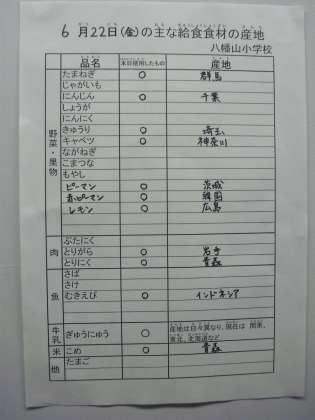 6月22日(金)の主な給食食材の産地
八幡山小学校
品名 本日使用したもの 産地
野菜・果物
たまねぎ ○ 群馬
じゃがいも
にんじん ○ 千葉
しょうが
にんにく
きゅうり ○ 埼玉
キャベツ ○ 神奈川
ながねぎ
こまつな
もやし
ピーマン ○ 茨城
赤ピーマン ○ 韓国
レモン ○ 広島
肉
ぶたにく
とりがら ○ 岩手
とりにく ○ 青森
魚
さば
さけ
むきえび ○ インドネシア
牛乳 ぎゅうにゅう ○ 産地は日々異なり、現在は 関東、
東北、北海道など
米 こめ ○ 青森
他 たまご